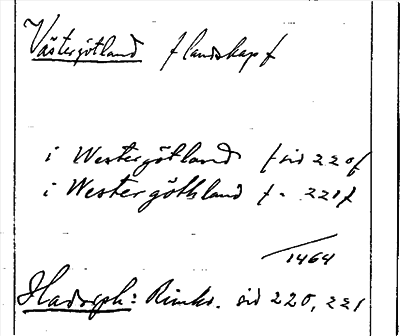 Västergötland f landskap f
i Westergötland f sid 220 f
i Westergöthland f - 221 f
1464
Hadorph: Rimkr. sid 220, 221